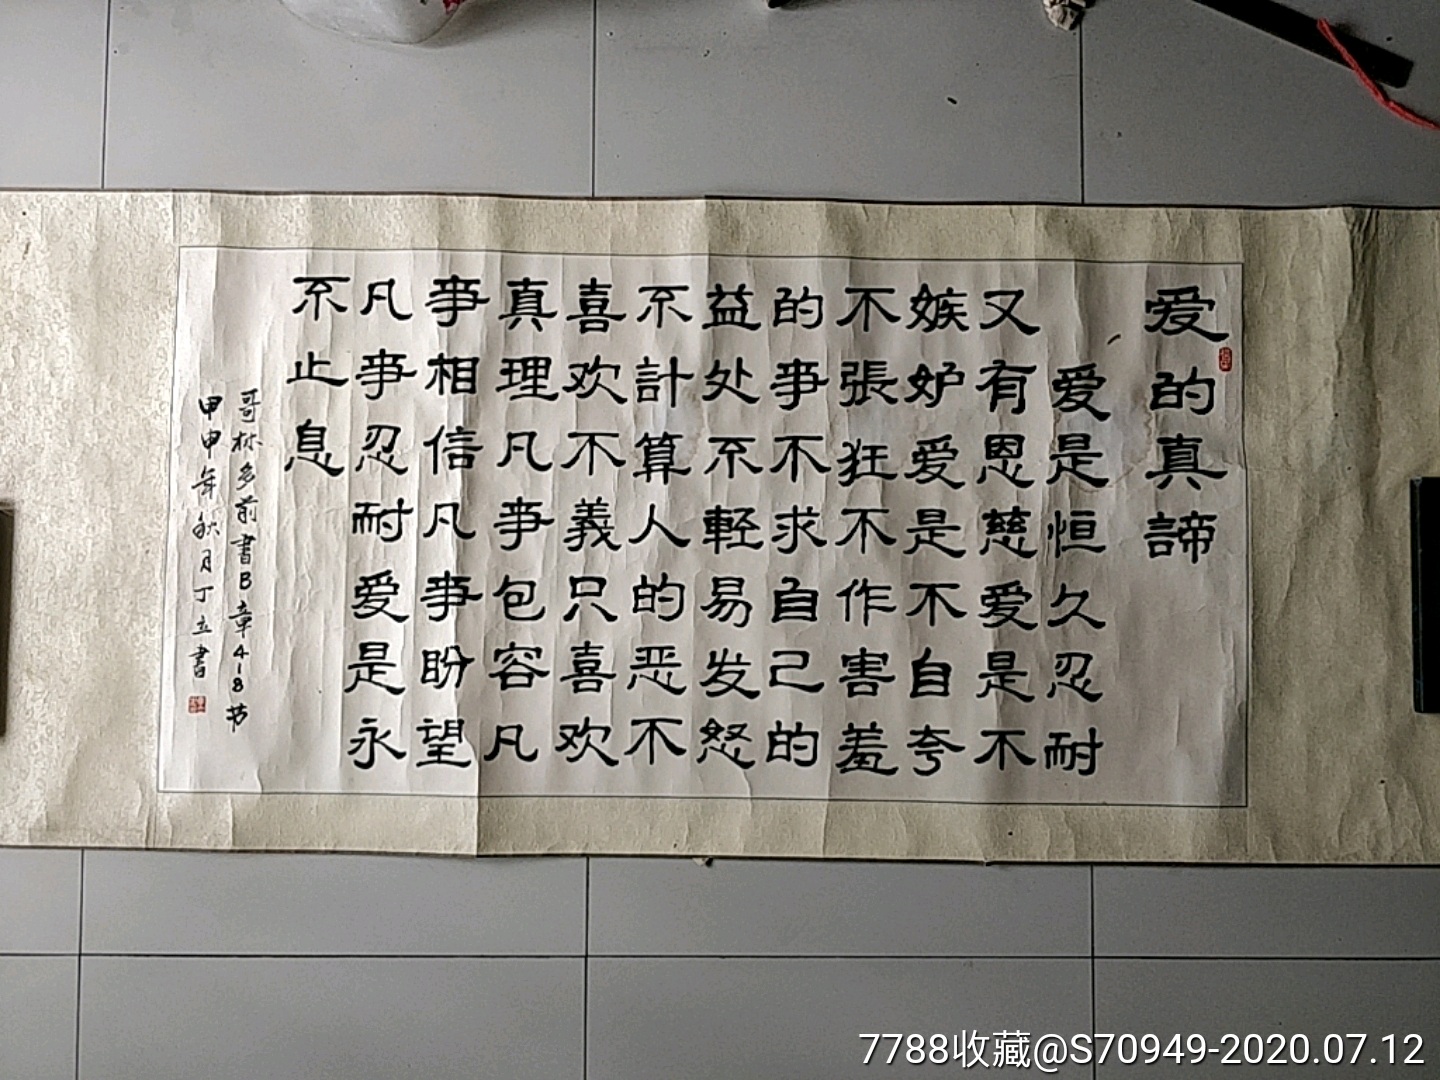 爱的真諦
爱是恒久忍耐
又有恩慈爱是不
嫉妒爱是不自夸
不張狂不作害羞
的事不求自己的
益处不輕易发怒
不計算人的恶不
喜欢不義只喜欢
真理凡事包容凡
事相信凡事盼望
凡事忍耐爱是永
不止息
哥林多前書B章4-18节
甲申年秋月丁立書
7788收藏@S70949-2020.07.12